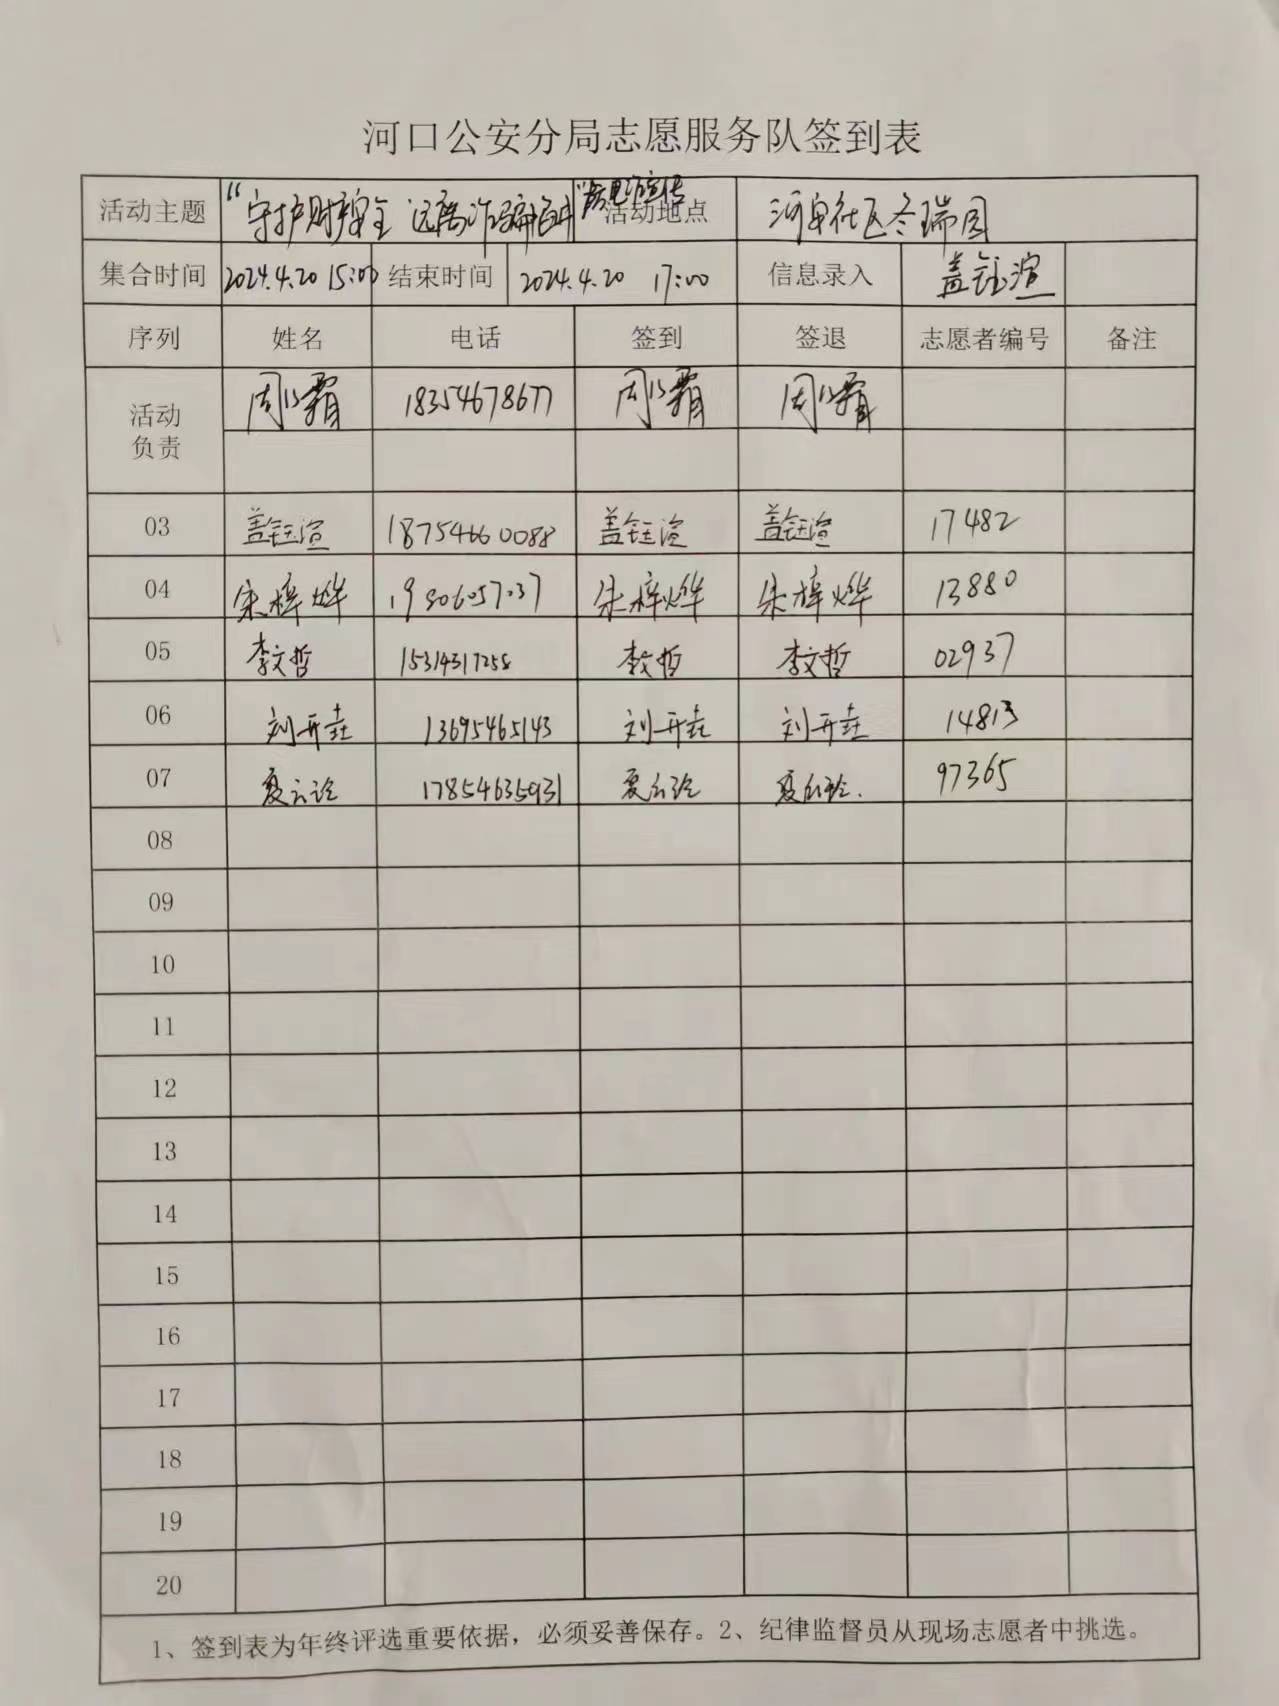 河口公安分局志愿服务队签到表
活动主题 “守护财产安全 远离诈骗 ”反电诈宣传 活动地点 河 社区冬瑞园
集合时间 2024.4.20 15:00 结束时间 2024.4.20 17:00 信息录入 盖钰渲
序列 姓名 电话 签到 签退 志愿者编号 备注
活动负责 周冰霜 18354678677 周冰霜 周冰霜
03 盖钰渲 18754660088 盖钰渲 盖钰渲 17482
04 宋梓烨 宋梓烨 宋梓烨 13880
05 李文哲 15314317258 李文哲 李文哲 02937
06 刘开垚 13695465143 刘开垚 刘开垚 14813
07 17854635931 97365
08
09
10
11
12
13
14
15
16
17
18
19
20
1、签到表为年终评选重要依据，必须妥善保存。2、纪律监督员从现场志愿者中挑选。